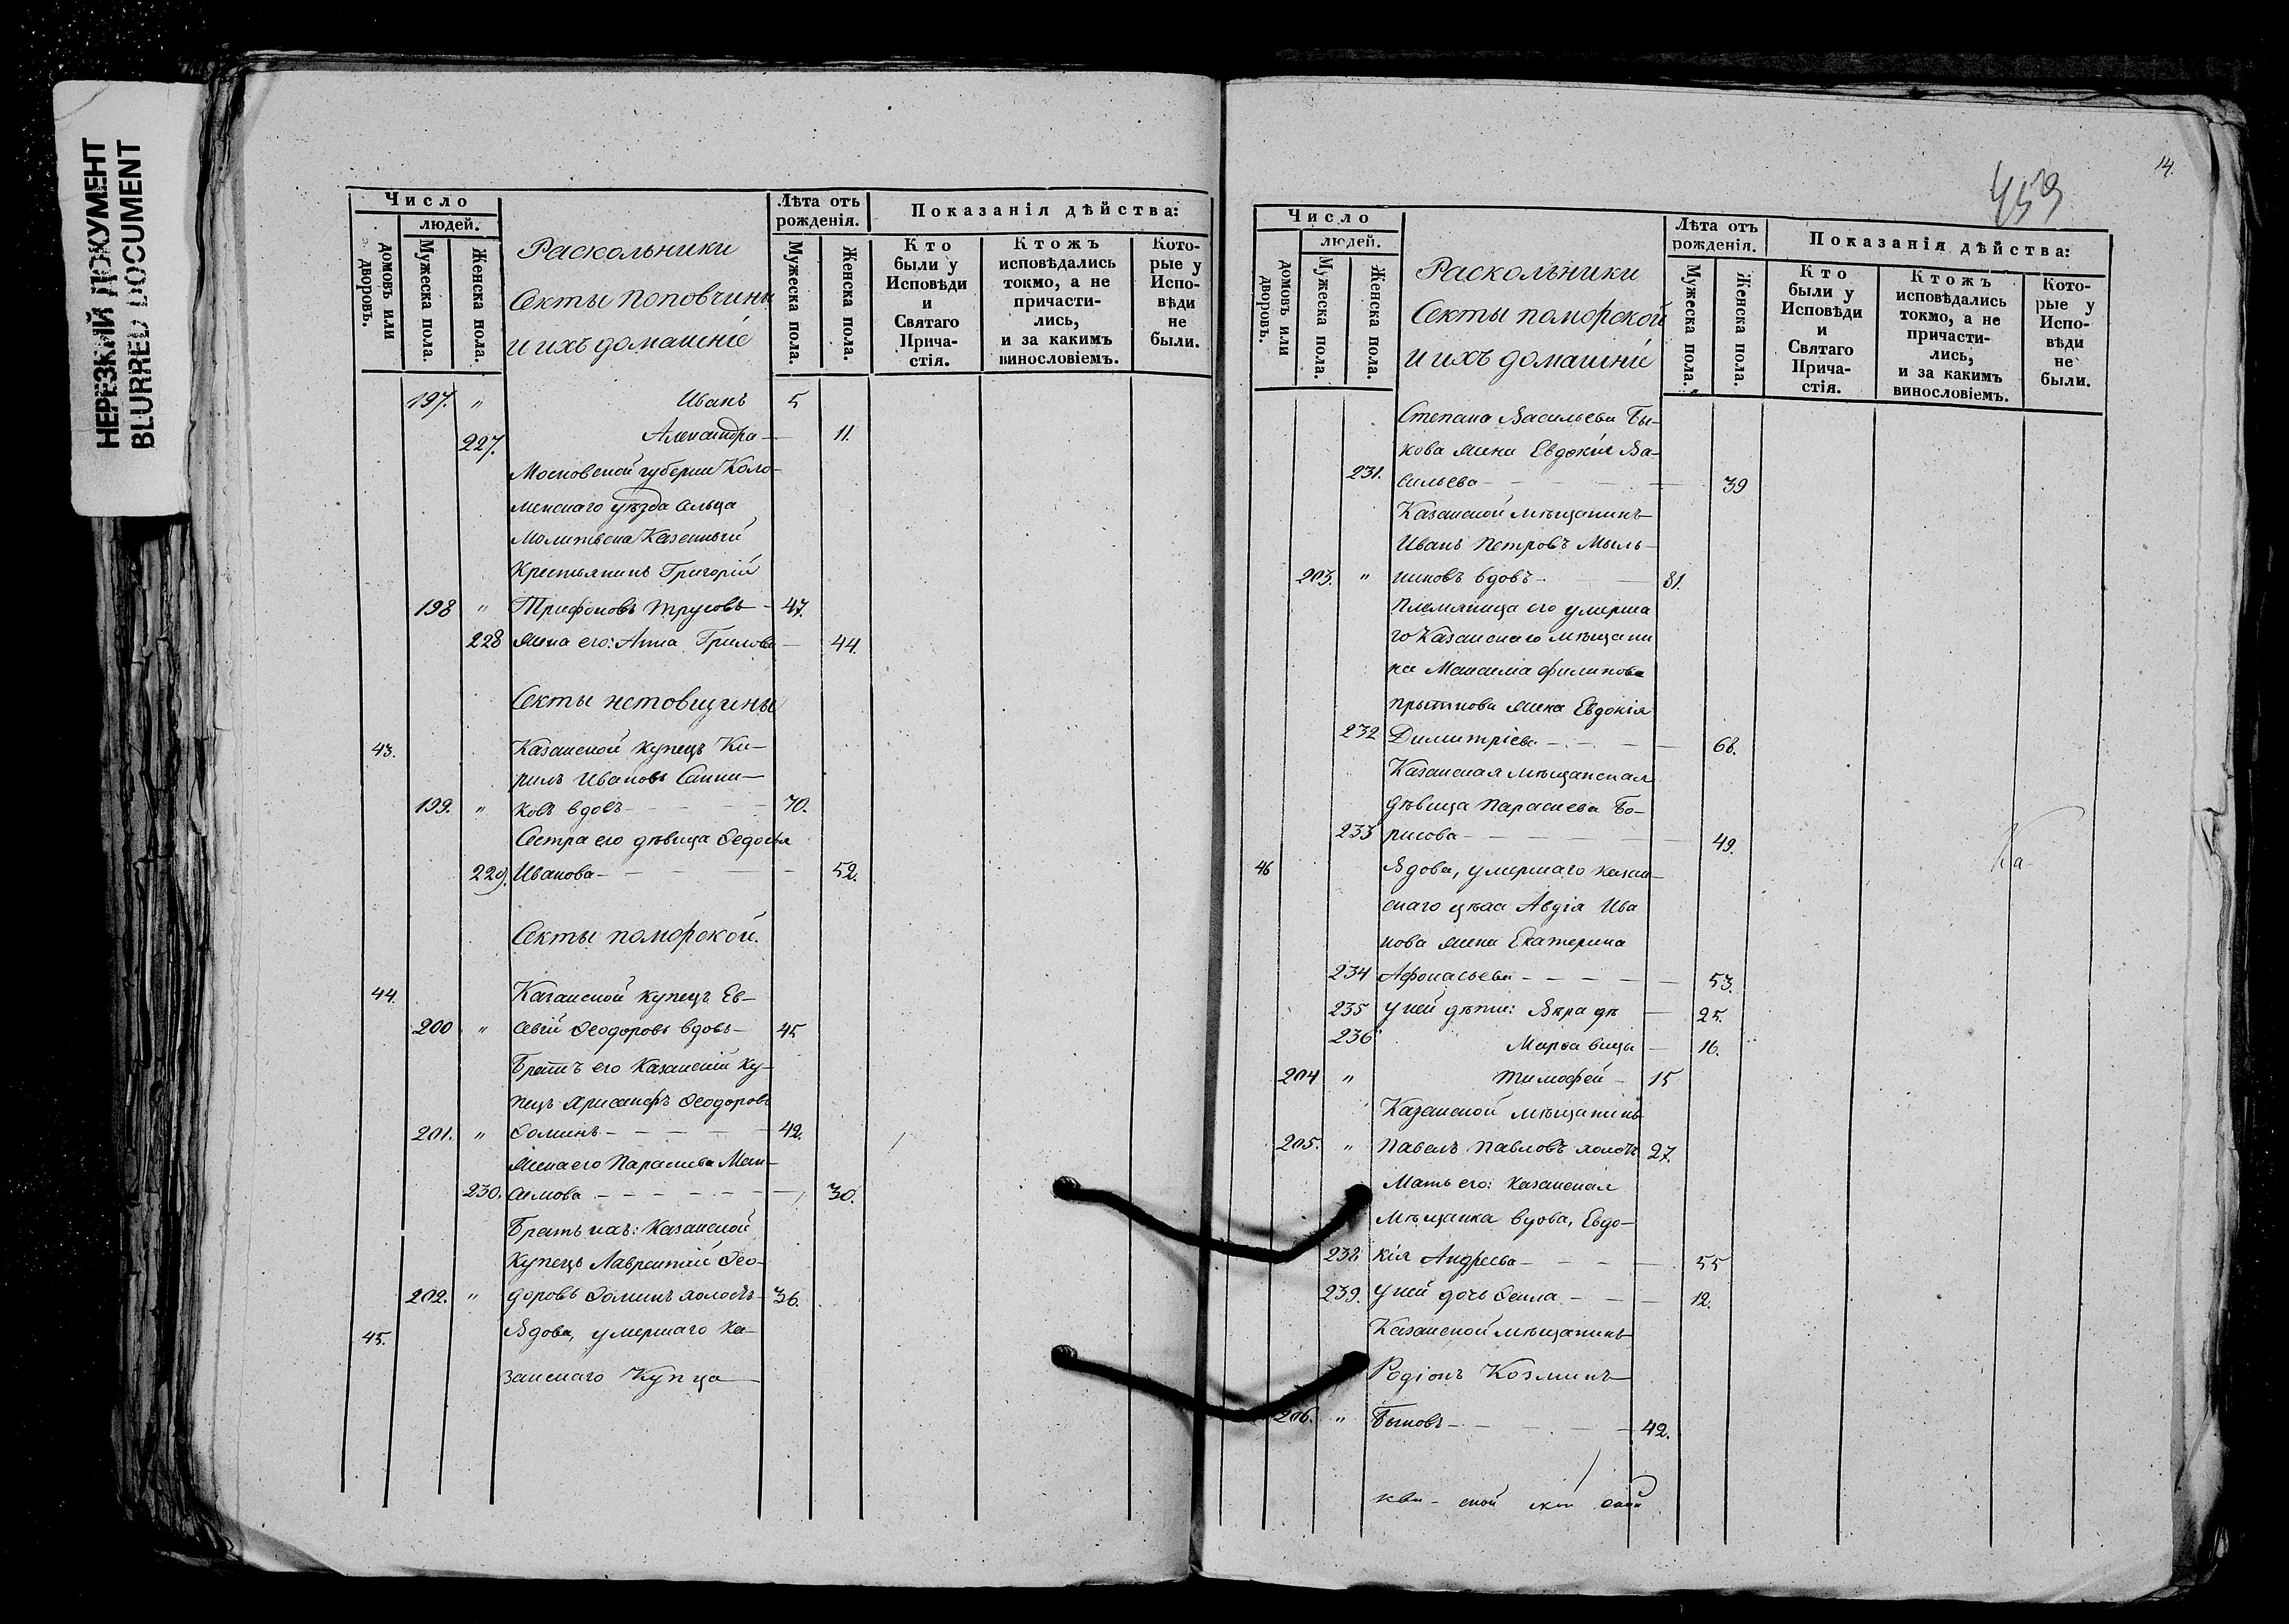 НЕРЕЗКИЙ ДОКУМЕНТ
BLURRED DOCUMENT
Число
людей.
домовъ или дворовъ.
Мужеска пола.
Женска пола.
Раскольники
Секты поповщины
и ихъ домашніе
Лѣта отъ рожденія.
Мужеска пола.
Женска пола.
Показанія дѣйства:
Кто были у Исповѣди и Святаго Причастія.
Ктожъ исповѣдались токмо, а не причастились, и за какимъ винословіемъ.
Которые у Исповѣди не были.
197. " Иванъ 5
227. Александра — 11.
Московской губерніи Коло-
менскаго уѣзда сельца
Казенный
Крестьянинъ Григорій
198 " Трифоновъ Трусовъ - 47.
228 жена его: Анна — 44.
Секты нетовщины
43. Казанской купецъ Ки-
рилъ Ивановъ
199. " ковъ вдовъ — 70.
Сестра его дѣвица Ѳедосья
229. Иванова — 52.
Секты поморской.
44. Казанской купецъ Ев-
200 " севій Ѳеодоровъ вдовъ — 45
Братъ его Казанскій ку-
пецъ Хрисанфъ Ѳеодоровъ
201. " Ѳоминъ — 42.
Жена его Параскева Мак-
230. симова — 30.
Братъ ихъ: Казанской
Купецъ Лаврентій Ѳео-
202. " доровъ Ѳоминъ холостъ - 36.
45. Вдова, умершаго Ка-
занскаго Купца
14.
459
Число
людей.
домовъ или дворовъ.
Мужеска пола.
Женска пола.
Раскольники
Секты поморской
и ихъ домашніе
Лѣта отъ рожденія.
Мужеска пола.
Женска пола.
Показанія дѣйства:
Кто были у Исповѣди и Святаго Причастія.
Ктожъ исповѣдались токмо, а не причастились, и за какимъ винословіемъ.
Которые у Исповѣди не были.
Степана Васильева Бы-
кова жена Евдокія Ва-
231. сильева — 39
Казанской мѣщанинъ
Иванъ Петровъ Мыль-
203. " никовъ вдовъ — 81.
Племяница его умерша
го Казанскаго мѣщани
на Максима Филипова
жена Евдокія
232 Димитріева — 68.
Казанская мѣщанская
дѣвица Параскева Бо-
233 рисова — 49.
46 Вдова, умершаго казан-
скаго Авдія Ива
нова жена Екатерина
234 Афонасьева — 53.
235 У ней дѣти: Вѣра дѣ — 25.
236 Марѳа вицы — 16.
204 " Тимофей — 15
Казанской мѣщанинъ
205. " Павелъ Павловъ холостъ 27.
Мать его: Казанская
Мѣщанка вдова, Евдо-
238 кія Андреева — 55
239. У ней дочь Ѳекла — 12.
Казанской мѣщанинъ
Родіонъ Козминъ
206. " Быковъ — 42.